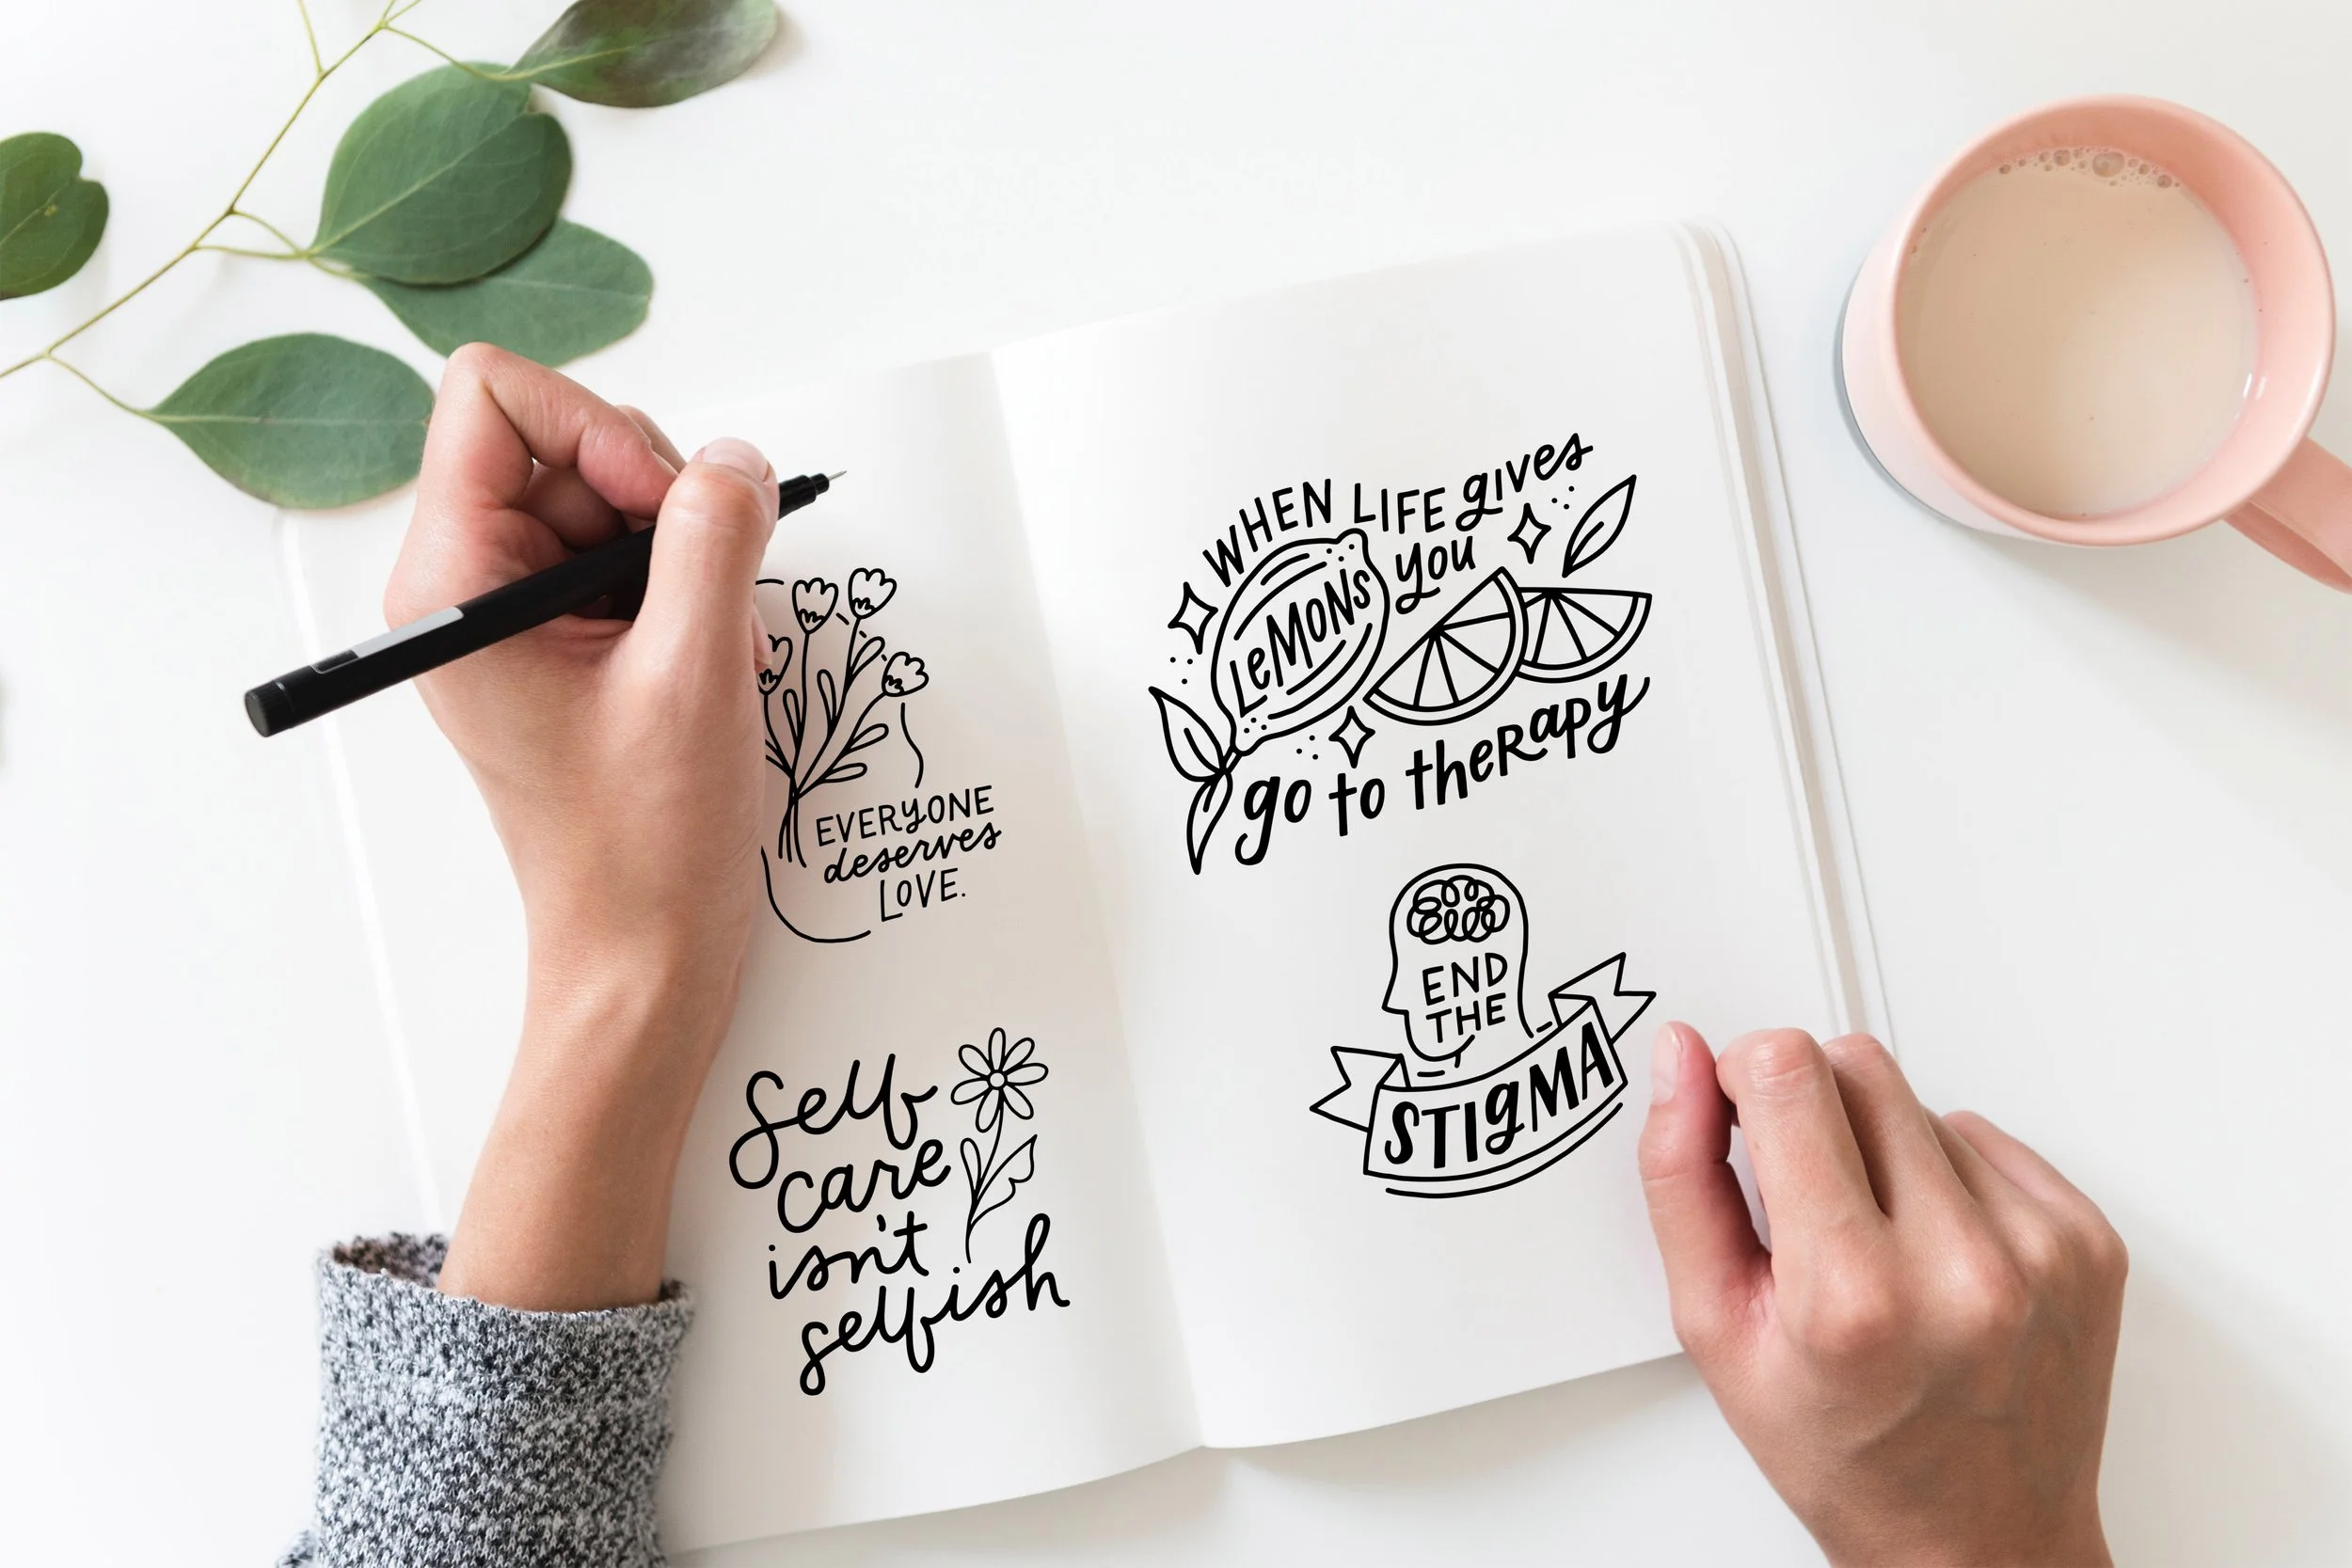 EVERYONE
deserves
LOVE.
Self
care
isn't
selfish
WHEN LIFE gives
LeMONs you
go to therapy
END
THE
STIgMA